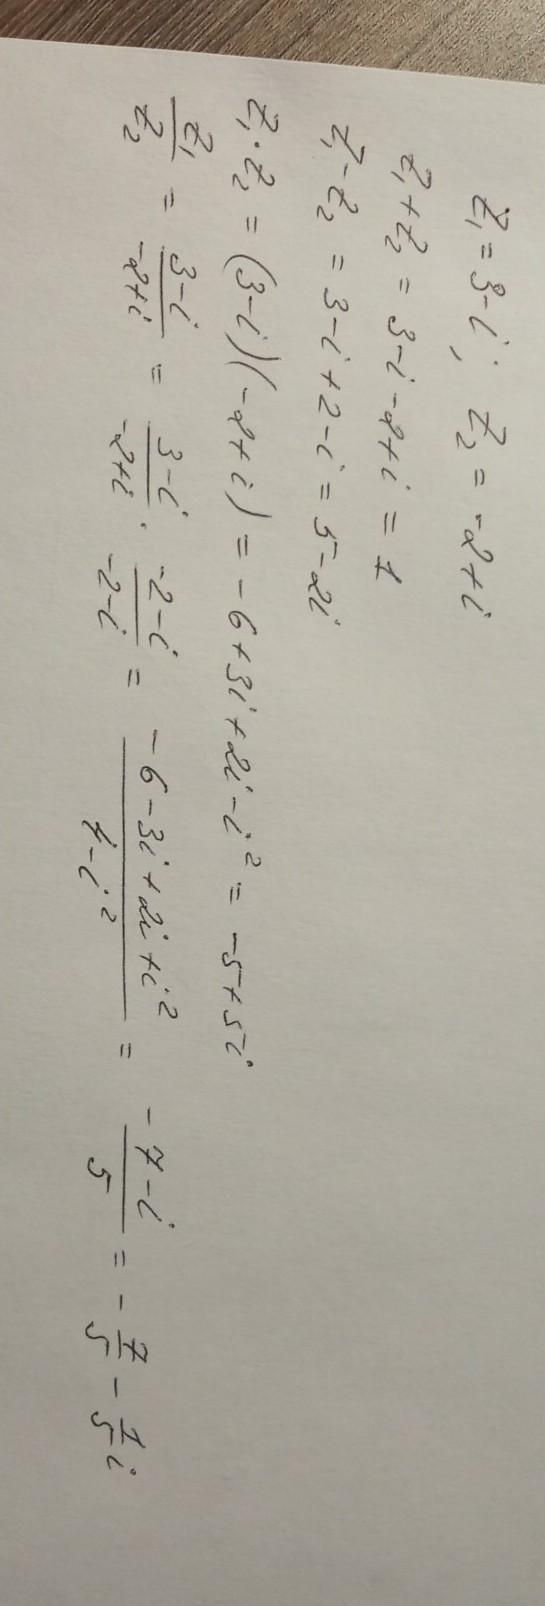 z₁ = 3-i, z₂ = -2+i
z₁+z₂ = 3-i-2+i = 1
z₁-z₂ = 3-i+2-i = 5-2i
z₁·z₂ = (3-i)(-2+i) = -6+3i+2i-i² = -5+5i
z₁/z₂ = (3-i)/(-2+i) = (3-i)/(-2+i) · (-2-i)/(-2-i) = (-6-3i+2i+i²)/(4-i²) = (-7-i)/5 = -7/5 - 1/5 i